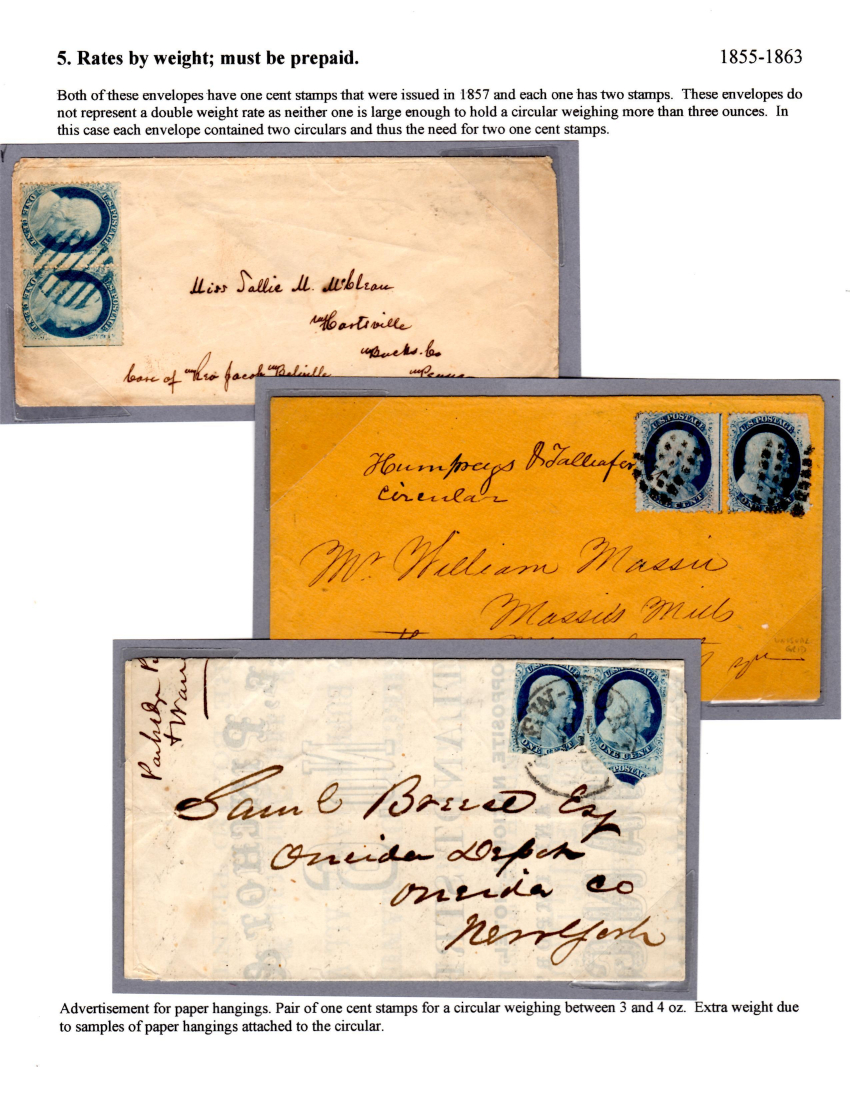 5. Rates by weight; must be prepaid. 1855-1863
Both of these envelopes have one cent stamps that were issued in 1857 and each one has two stamps. These envelopes do
not represent a double weight rate as neither one is large enough to hold a circular weighing more than three ounces. In
this case each envelope contained two circulars and thus the need for two one cent stamps.
U.S. POSTAGE
ONE CENT
U.S. POSTAGE
ONE CENT
Miss Sallie M. McClean
Hartsville
Bucks. Co
Care of Rev Jacob Belville
Penna
U.S. POSTAGE
U.S. POSTAGE
Humphreys & Talliafer
Circular
Mr William Massie
Massie's Mills
UNUSUAL
GRID
ONE CENT
ONE CENT
Saml Breese Esq
Oneida Depot
Oneida Co
New York
Advertisement for paper hangings. Pair of one cent stamps for a circular weighing between 3 and 4 oz. Extra weight due
to samples of paper hangings attached to the circular.